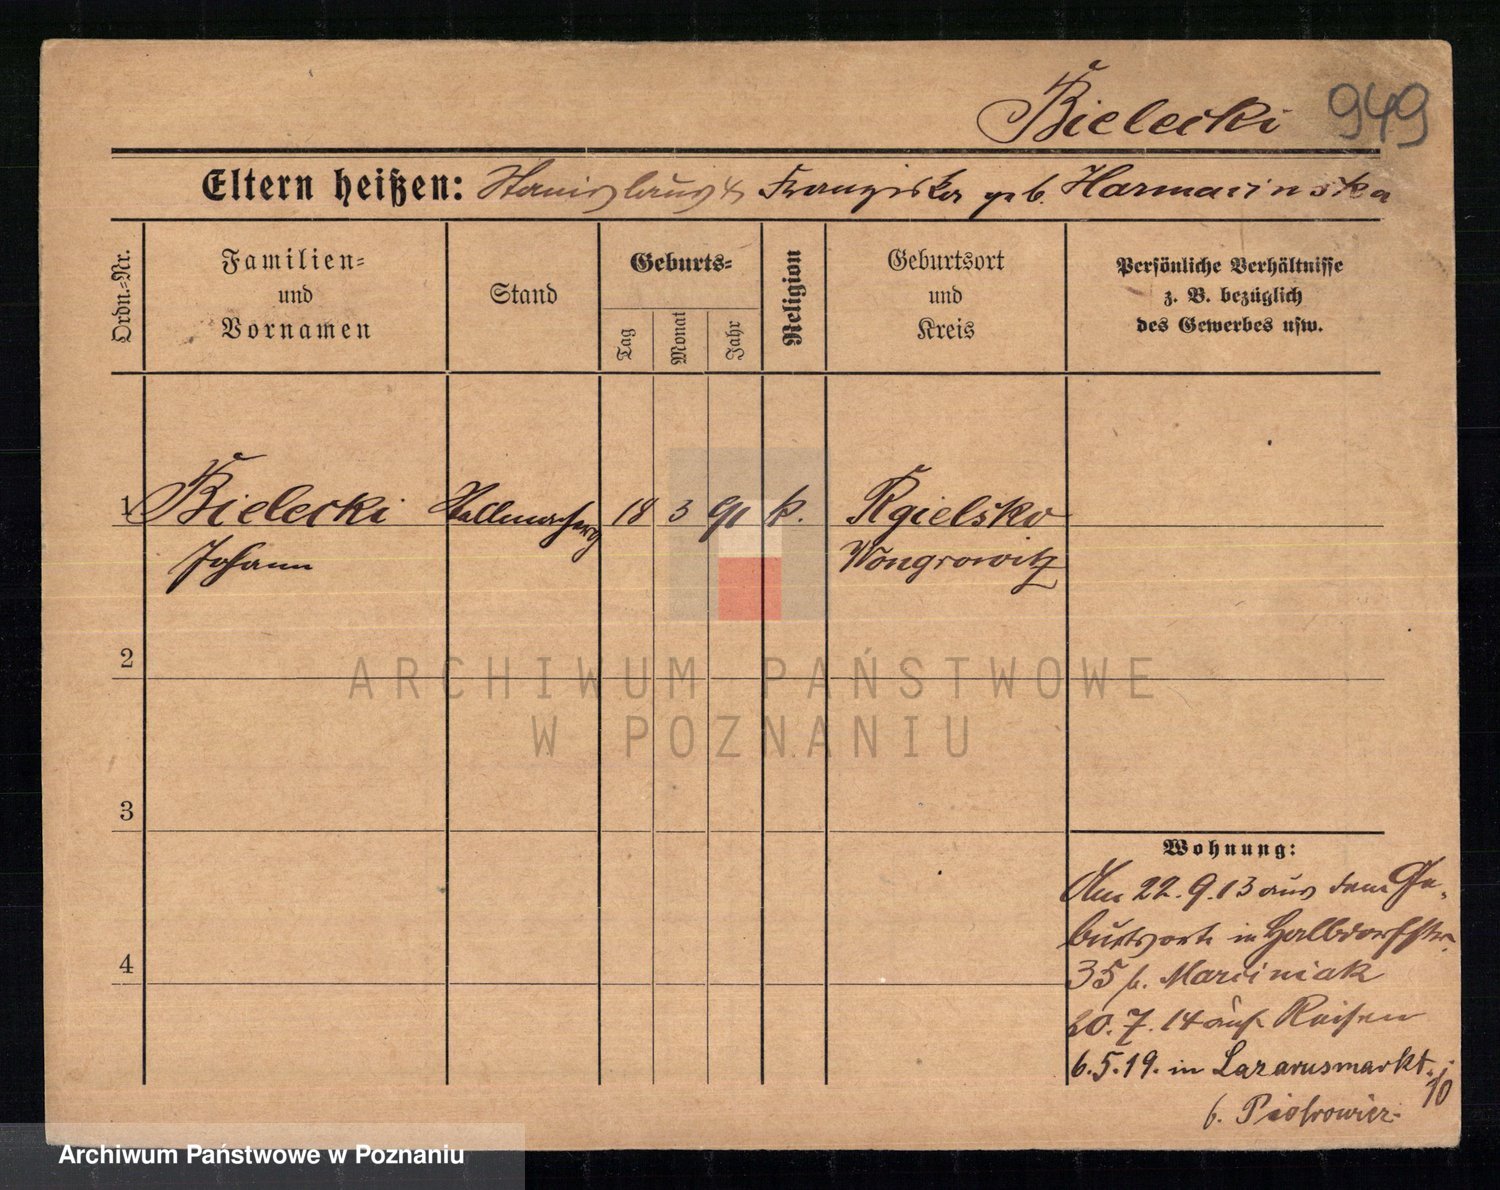 Bielecki 949
Eltern heißen: Stanislaus & Franziska geb. Harmacinska
Ordn.=Nr.
Familien=
und
Vornamen
Stand
Geburts=
Tag
Monat
Jahr
Religion
Geburtsort
und
Kreis
Persönliche Verhältnisse
z. B. bezüglich
des Gewerbes usw.
1 Bielecki Stellmacherg 18 3 91 k. Rgielsko
Johann Wongrowitz
2
3
4
Wohnung:
Am 22.9.13 aus dem Ge-
burtsort in Halbdorfstr.
35 b. Marciniak
20.7.14 auf Reisen
6.5.19. in Lazarusmarkt
10
b. Piotrowicz
ARCHIWUM PAŃSTWOWE
W POZNANIU
Archiwum Państwowe w Poznaniu